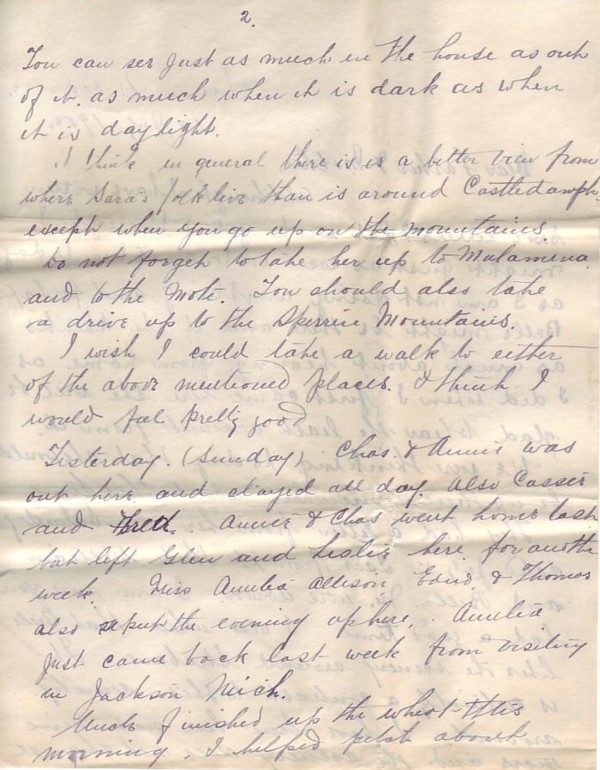 2.
You can see just as much in the house as out
of it. as much when it is dark as when
it is daylight.
I think in general there is is a better view from
where Sara's folk live than is around Castledawph.
except when you go up on the mountains
Do not forget to take her up to Mulamena
and to the Mote. You should also take
a drive up to the Sperrin Mountains.
I wish I could take a walk to either
of the above mentioned places. I think I
would feel pretty good
Yesterday. (Sunday). Chas. & Annie was
out here and stayed all day. also Casser
and Fred. Annie & Chas went home last
but left Glen and Leslie here. for another
week. Miss Amelia Allison & Thomas
also the evening up here. Amelia
just came back last week from visiting
in Jackson Mich.
Uncle finished up the wheat this
morning. I helped pitch about